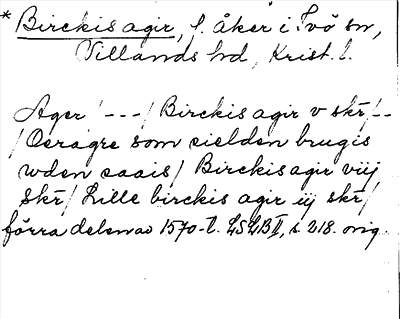 * Birckis agir, f. åker i Ivö sn,
Villands hd, Krist. l.
Ager /---/ Birckis agir v skr/--
/Oeragre som sielden brugis
wden saais/ Birckis agir viij
skr/ Lille birckis agir iij skr/
förra delen av 1570-t. LSLB II, s. 218. orig.